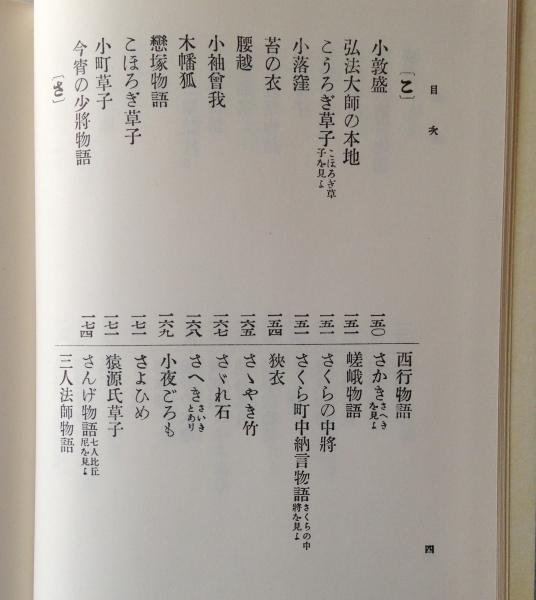 目次
〔こ〕
小敦盛 一五〇
弘法大師の本地 一五一
こうろぎ草子 こほろぎ草子を見よ 一五一
小落窪 一五一
苔の衣 一五四
腰越 一六五
小袖曾我 一六七
木幡狐 一六八
戀塚物語 一六九
こほろぎ草子 一七一
小町草子 一七一
今宵の少將物語 一七四
〔さ〕
西行物語
さかき さへきを見よ
嵯峨物語
さくらの中將
さくら町中納言物語 さくらの中將を見よ
狹衣
さゝやき竹
さゞれ石
さへき さいきとあり
小夜ごろも
さよひめ
猿源氏草子
さんげ物語 七人比丘尼を見よ
三人法師物語
四